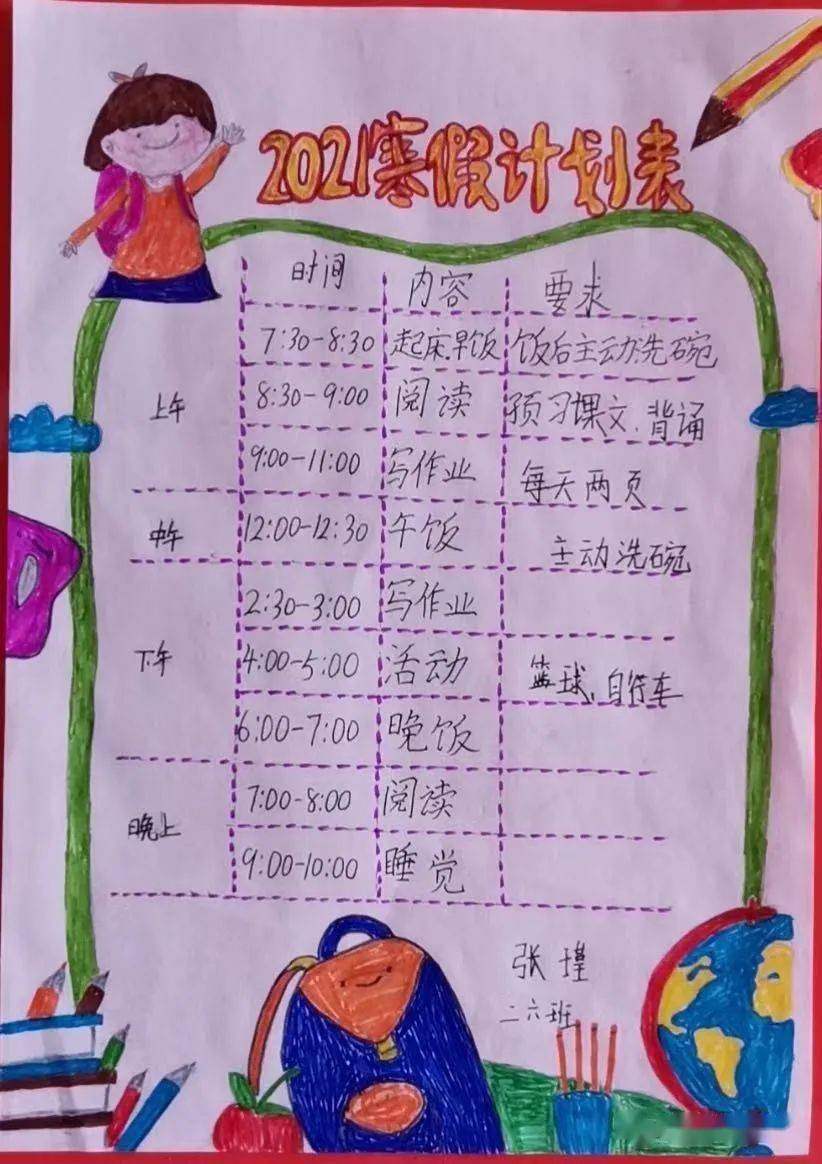 2021寒假计划表
时间 内容 要求
上午
7:30-8:30 起床.早饭 饭后主动洗碗
8:30-9:00 阅读 预习课文.背诵
9:00-11:00 写作业 每天两页
中午
12:00-12:30 午饭 主动洗碗
下午
2:30-3:00 写作业
4:00-5:00 活动 篮球、自行车
6:00-7:00 晚饭
晚上
7:00-8:00 阅读
9:00-10:00 睡觉
张瑾
二六班